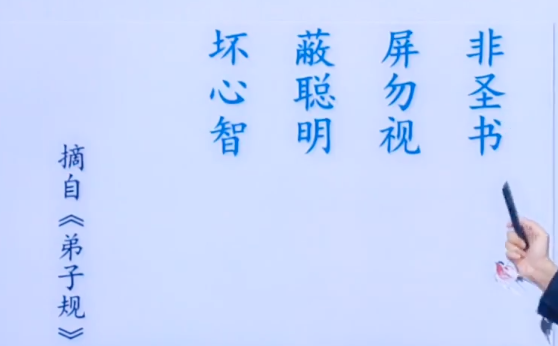 非圣书
屏勿视
蔽聪明
坏心智
摘自《弟子规》